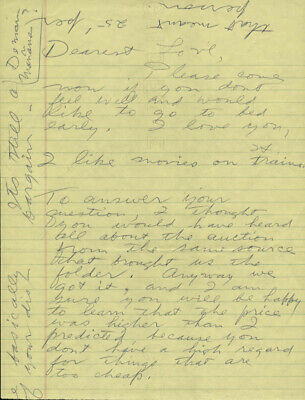 Dearest Love,
Please come
now if you dont
feel well and would
like to go to bed
early. I love you,
I like movies on trains
To answer your
question, I thought
you would have heard
all about the auction
from the same source
that brought us the
folder. Anyway we
got it, and I am
sure you will be happy
to learn that the price
was higher than I
predicted, because you
dont have a high regard
for things that are
too cheap.
basically Its still a
your dist bargain —
person.
that moment 25¢ per